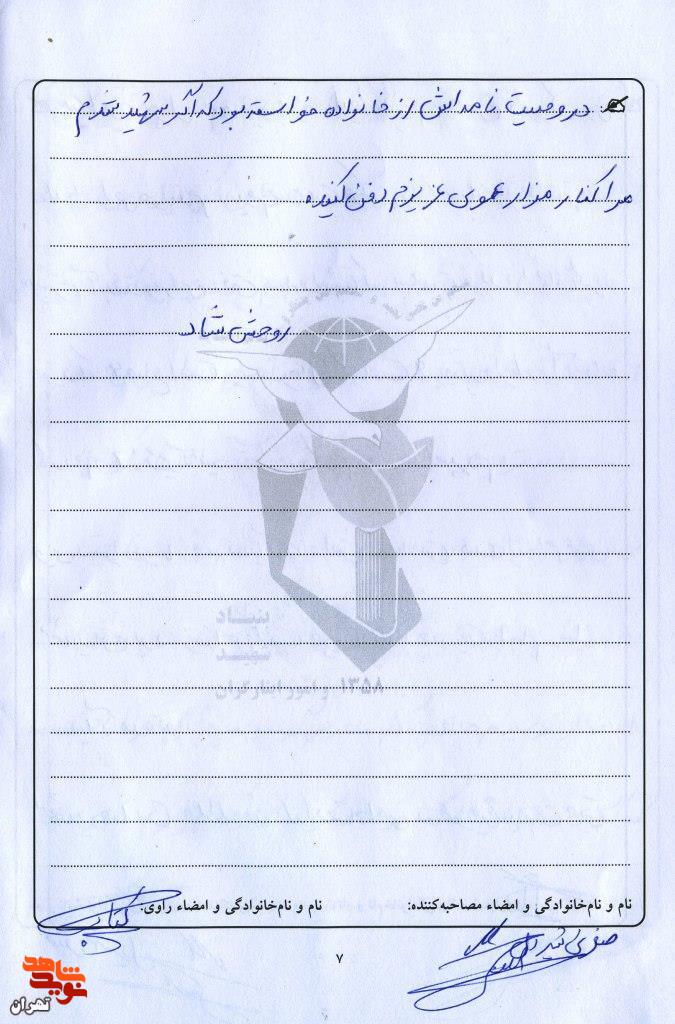 در وصیت نامه اش از خانواده خواسته بود که اگر شهید شدم
مرا کنار مزار عموی عزیزم دفن کنید.
روحش شاد
بنیاد
شهید
و امور ایثارگران ۱۳۵۸
نام و نام‌خانوادگی و امضاء مصاحبه‌کننده:
نام و نام‌خانوادگی و امضاء راوی:
۷
نوید شاهد
تهران